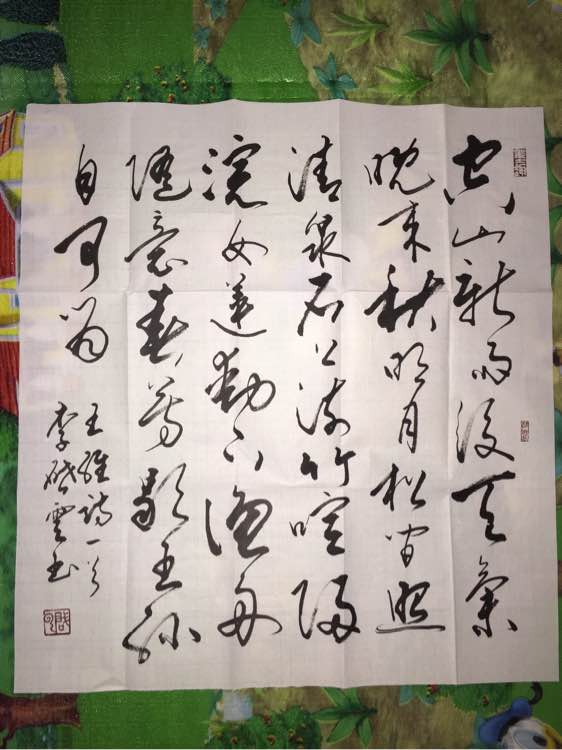 空山新雨後天氣
晚来秋明月松间照
清泉石上流竹喧歸
浣女莲動下渔舟
随意春芳歇王孫
自可留
王維詩一首
李啟雲书